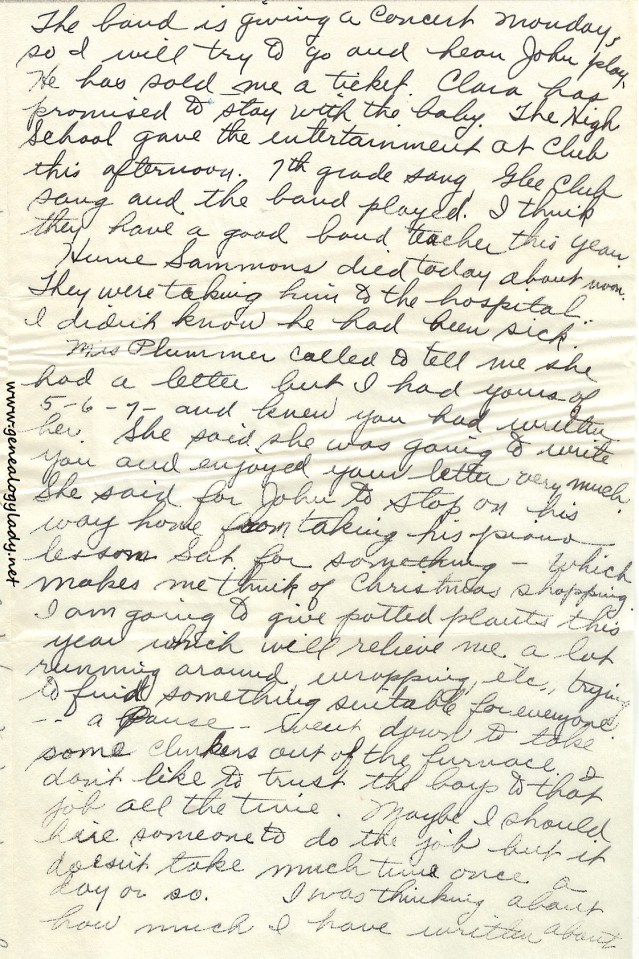 The band is giving a Concert Monday,
so I will try to go and hear John play.
He has sold me a ticket. Clara has
promised to stay with the baby. The High
School gave the entertainment at Club
this afternoon. 7th grade sang, Glee Club
sang and the band played. I think
they have a good band teacher this year.
Hume Sammons died today about noon.
They were taking him to the hospital.
I didn't know he had been sick.
Mrs Plummer called to tell me she
had a letter but I had yours of
5-6-7- and knew you had written
her. She said she was going to write
you and enjoyed your letter very much.
She said for John to stop on his
way home from taking his piano
lesson Sat. for something - which
makes me think of Christmas shopping.
I am going to give potted plants this
year which will relieve me a lot
running around, wrapping, etc., trying
to find something suitable for everyone
-- a Pause - I went down to take
some clinkers out of the furnace. I
don't like to trust the boys to that
job all the time. Maybe I should
hire someone to do the job but it
doesn't take much time once a
day or so. I was thinking about
how much I have written about
www.genealogylady.net